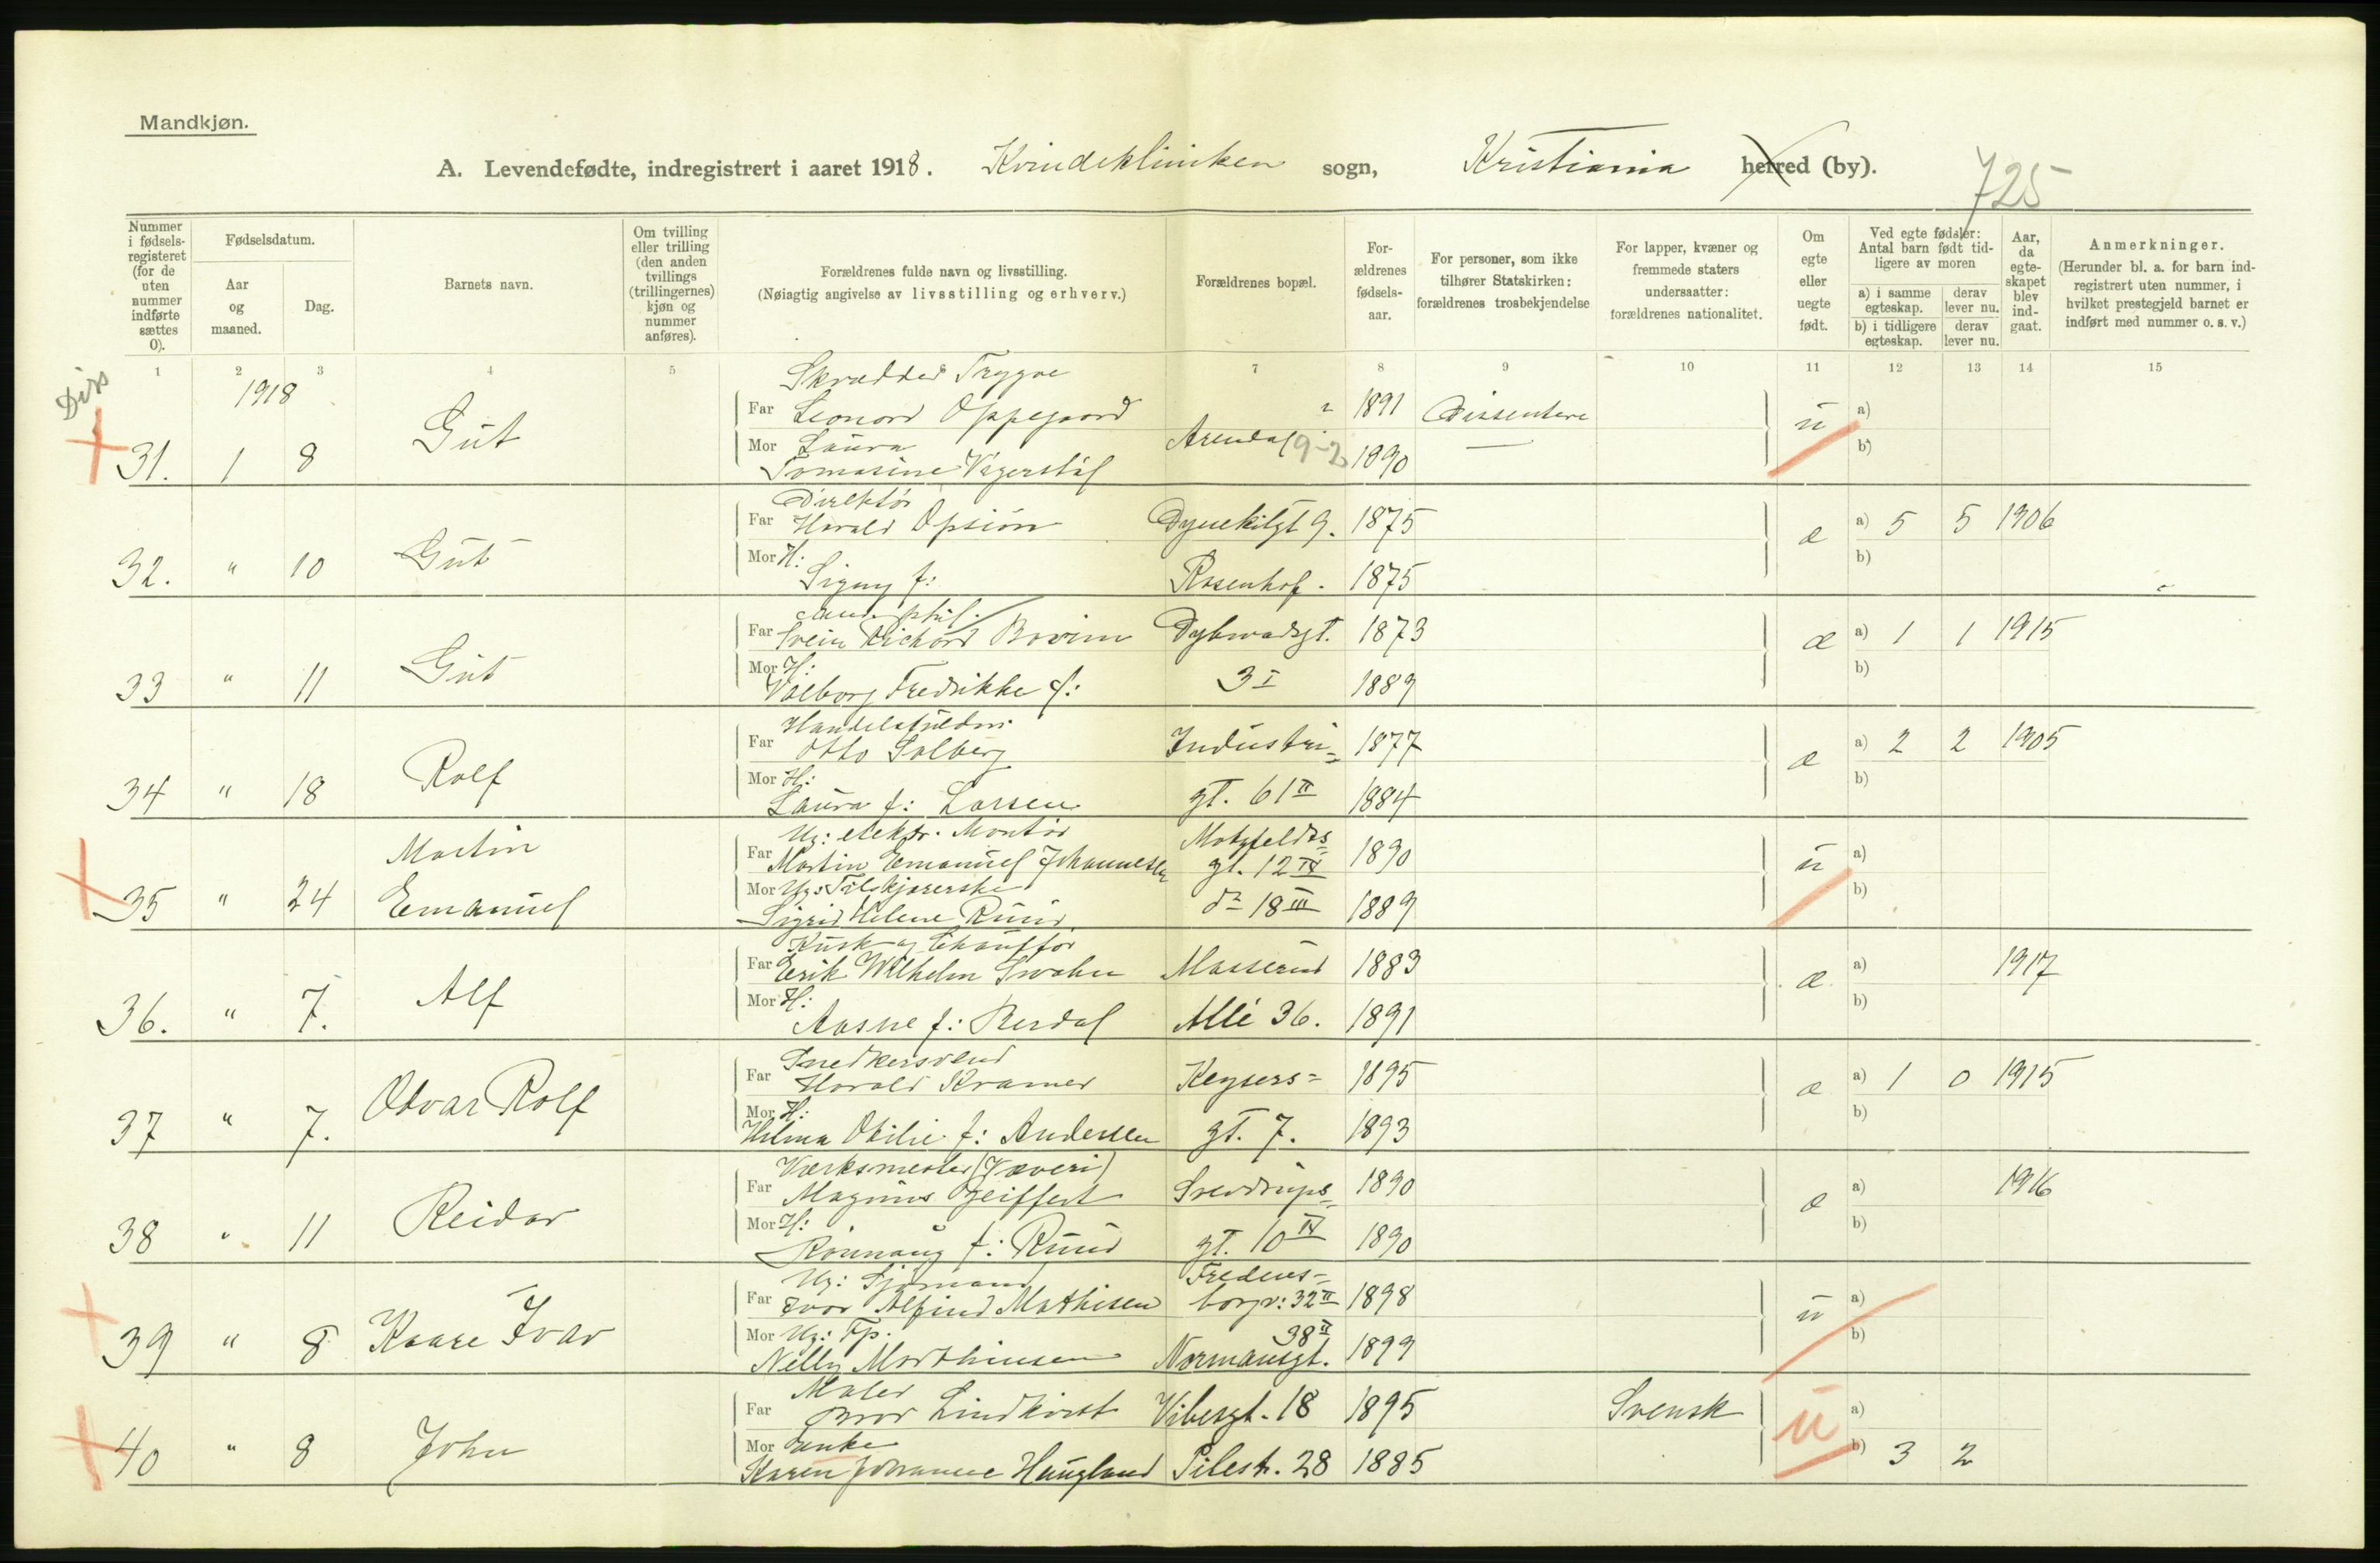 Mandkjøn.
A. Levendefødte, indregistrert i aaret 1918. Kvindekliniken sogn, Kristiania herred (by).
725
Nummer i fødsels-registeret (for de uten nummer indførte sættes 0).
Fødselsdatum.
Aar og maaned.
Dag.
Barnets navn.
Om tvilling eller trilling (den anden tvillings (trillingernes) kjøn og nummer anføres).
Forældrenes fulde navn og livsstilling.
(Nøiagtig angivelse av livsstilling og erhverv.)
Forældrenes bopæl.
For-ældrenes fødsels-aar.
For personer, som ikke tilhører Statskirken: forældrenes trosbekjendelse
For lapper, kvæner og fremmede staters undersaatter: forældrenes nationalitet.
Om egte eller uegte født.
Ved egte fødsler: Antal barn født tid-ligere av moren
a) i samme egteskap.
derav lever nu.
b) i tidligere egteskap.
derav lever nu.
Aar, da egte-skapet blev ind-gaat.
Anmerkninger.
(Herunder bl. a. for barn ind-registrert uten nummer, i hvilket prestegjeld barnet er indført med nummer o. s. v.)
1 2 3 4 5 7 8 9 10 11 12 13 14 15
Diss
1918
Skrædder Trygve
Far Leonard Oppegaard 1891 Dissentere
31. 1 8 Gut Arendal 9-2 u a)
Mor Laura — b)
Tomasine Vegerstøl 1890
Direktør
Far Harald Opsiön Dynekilgt 9. 1875 a) 5 5 1906
32. " 10 Gut æ
Mor H: b)
Signy f: Rosenhof. 1875
cand. phil.
Far Svein Richard Bovim Dybwadsgt. 1873 a) 1 1 1915
33 " 11 Gut æ
Mor H: b)
Valborg Fredrikke f: 3 I 1889
Handelsfuldm.
Far Otto Solberg Industri= 1877 a) 2 2 1905
34 " 18 Rolf æ
Mor H: b)
Laura f: Larsen gt. 61 II 1884
Ug: elektr. Montør Motzfeldts=
Far Martin Emanuel Johannesen gt. 12 IV 1890 a)
35 " 24 Martin Emanuel u
Mor Ug: Tilskjærerske b)
Sigrid Helene Ruud do 18 III 1889
Kusk og Chauffør
Far Erik Wilhelm Swahn Masserud 1883 a) 1917
36. " 7. Alf æ
Mor H: b)
Aasne f: Berdal Allé 36. 1891
Snedkersvend
Far Harald Kramer Keysers= 1895 a) 1 0 1915
37 " 7. Odvar Rolf æ
Mor H: b)
Hilma Otilie f: Andersen gt. 7. 1893
Værksmester (Væveri)
Far Magnus Geiffert Sverdrups= 1890 a) 1916
38 " 11 Reidar æ
Mor H: b)
Rönnaug f: Ruud gt. 10 IV 1890
Ug: Sjømand Fredens=
Far Ivar Alfred Mathisen borgv: 32 II 1898 a)
39 " 8 Kaare Ivar u
Mor Ug: Fp. 38 II b)
Nelly Marthinsen Normansgt. 1899
Maler
Far Bror Lindkvist Vibesgt. 18 1895 Svensk a)
40 " 8 John u
Mor Enke b) 3 2
Karen Johanne Haugland Pilestr. 28 1885